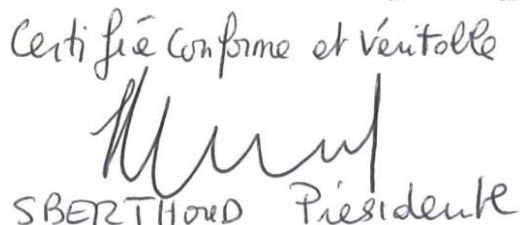 Certifié conforme et véritable
SBERTHOUD Présidente